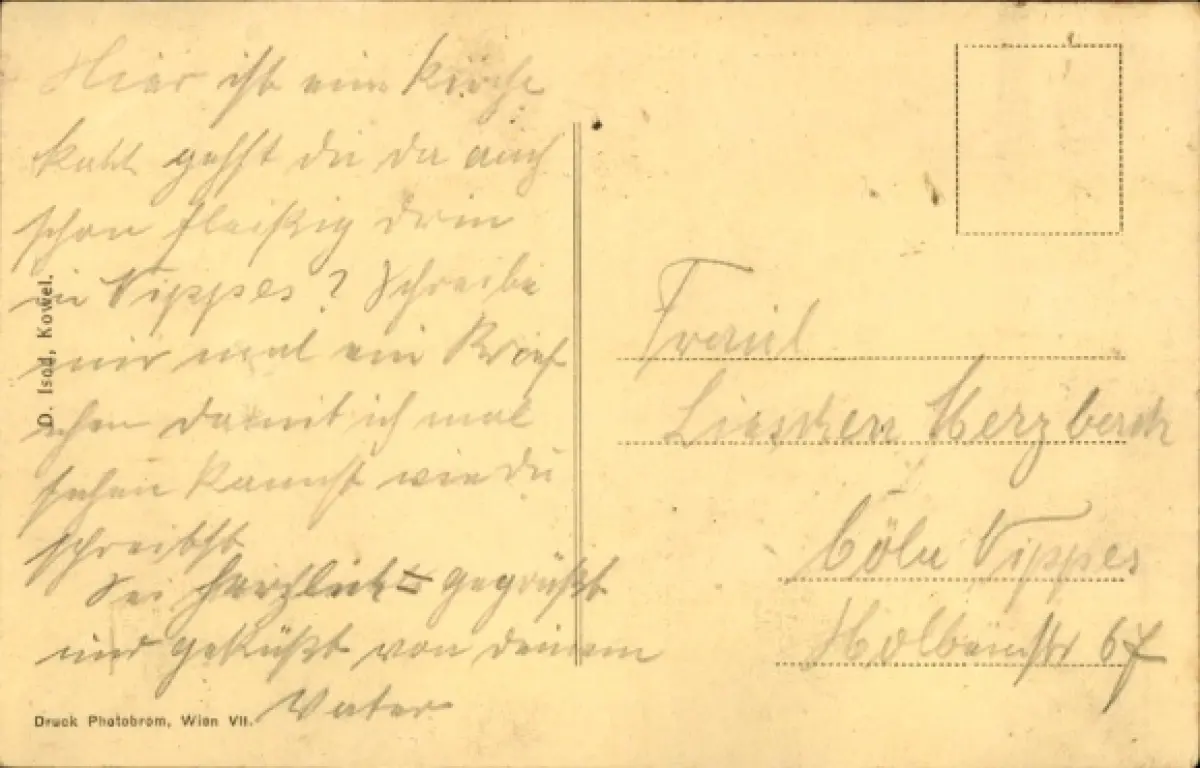 Hier ist eine Kirche
gehst du da auch
schon fleißig drin
in Nippes? Schreibe
mir mal ein Brief
chen damit ich mal
sehen kannst wie du
schreibst
Sei herzlich gegrüßt
und geküßt von deinem
Vater
D. Isod, Kowel.
Druck Photobrom, Wien VII.
Fräul
Lieschen Herzbach
Cöln Nippes
Holbeinstr 67